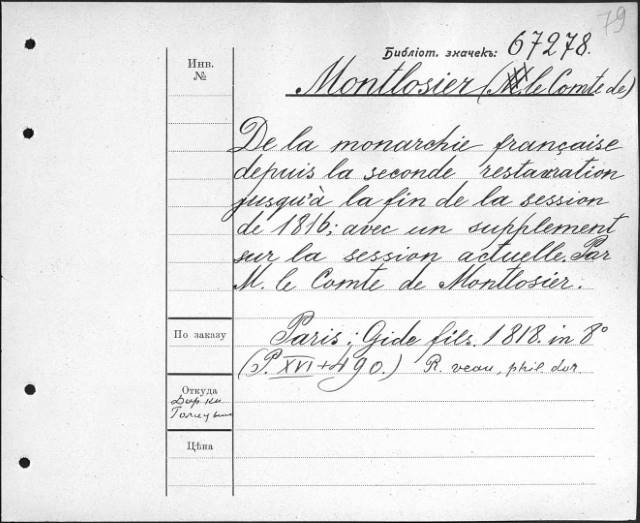 79
Библіот. значекъ: 67278.
Инв.
№
Montlosier (M. le Comte de)
De la monarchie française
depuis la seconde restauration
jusqu'à la fin de la session
de 1816; avec un supplement
sur la session actuelle. Par
M. le Comte de Montlosier.
По заказу
Paris: Gide fils. 1818. in 8°
(P. XVI + 490.) R. veau, phil. dor.
Откуда
Дар кн
Цѣна